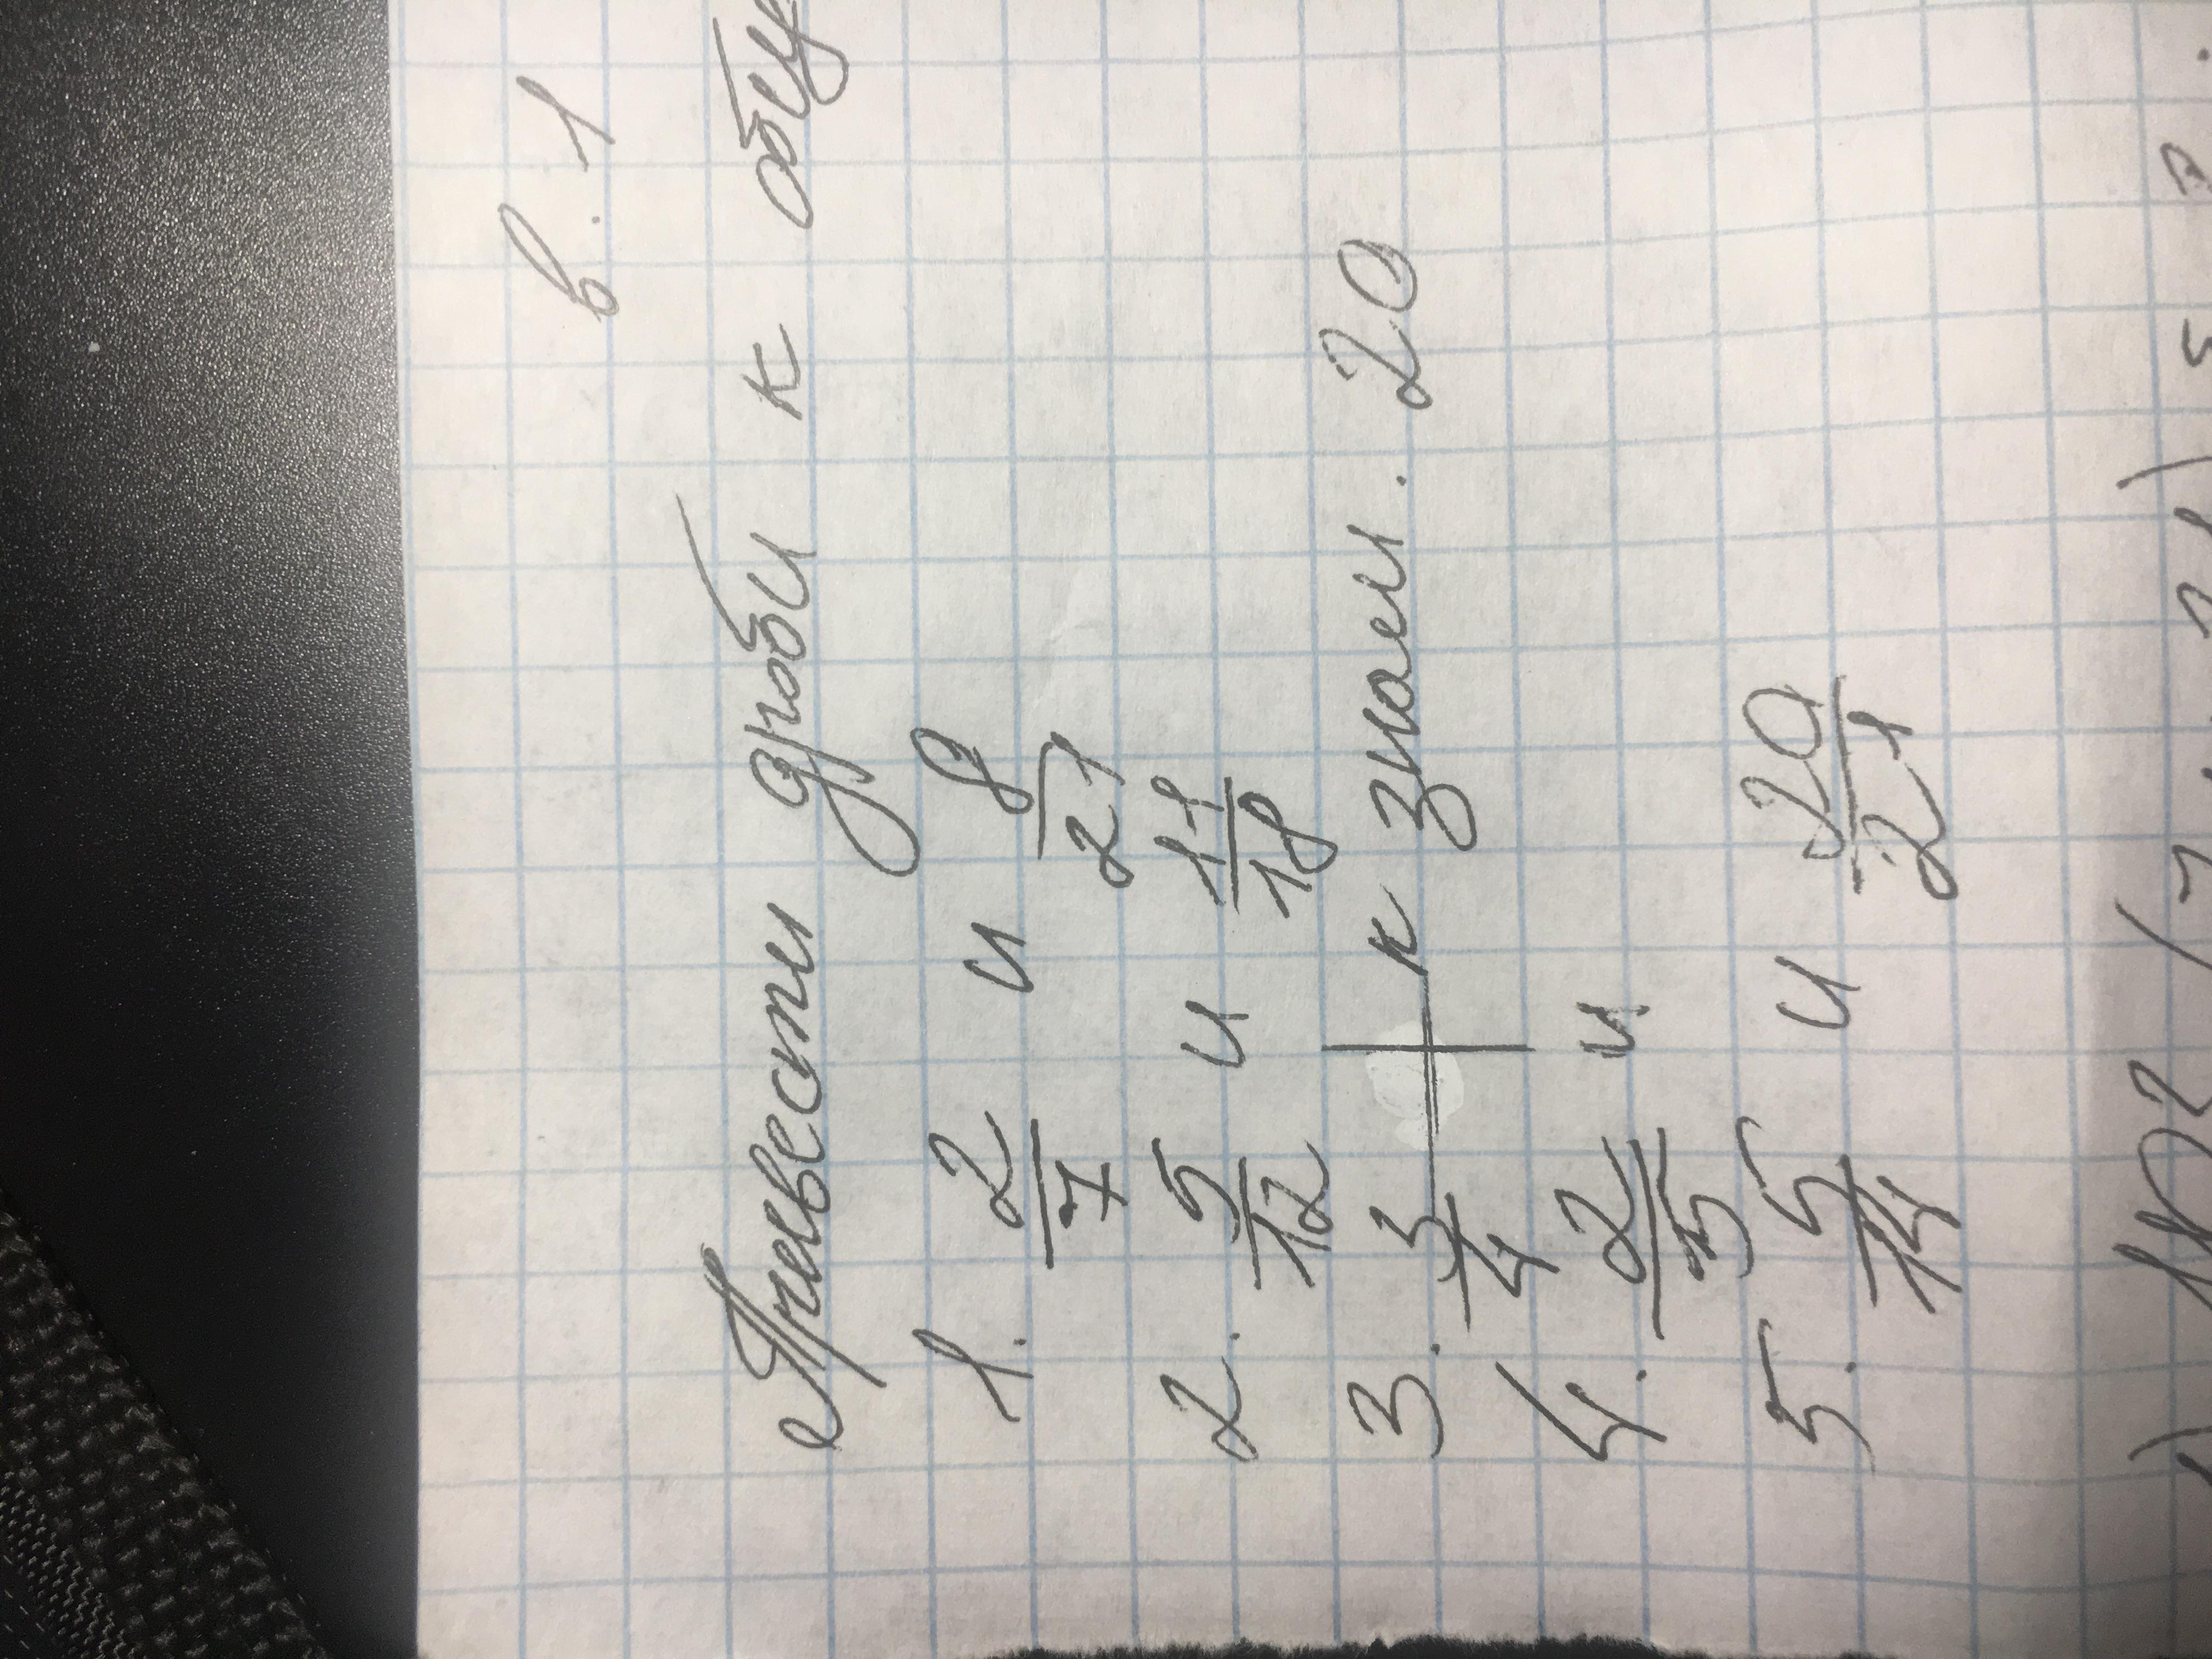 в. 1
Привести дроби к общ
1. 2/7 и 8/21
2. 5/12 и 11/18
3. 3/4 к знам. 20
4. 2/5 и
5. 5/14 и 20/21